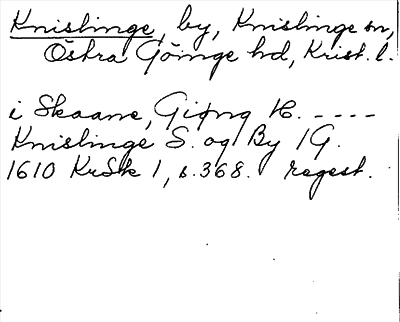 Knislinge, by, Knislinge sn,
Östra Göinge hd, Krist. l.
i Skaane, Giøng H. - - - -
Knislinge S. og By 1 G.
1610 KrSk 1, s. 368. regest.